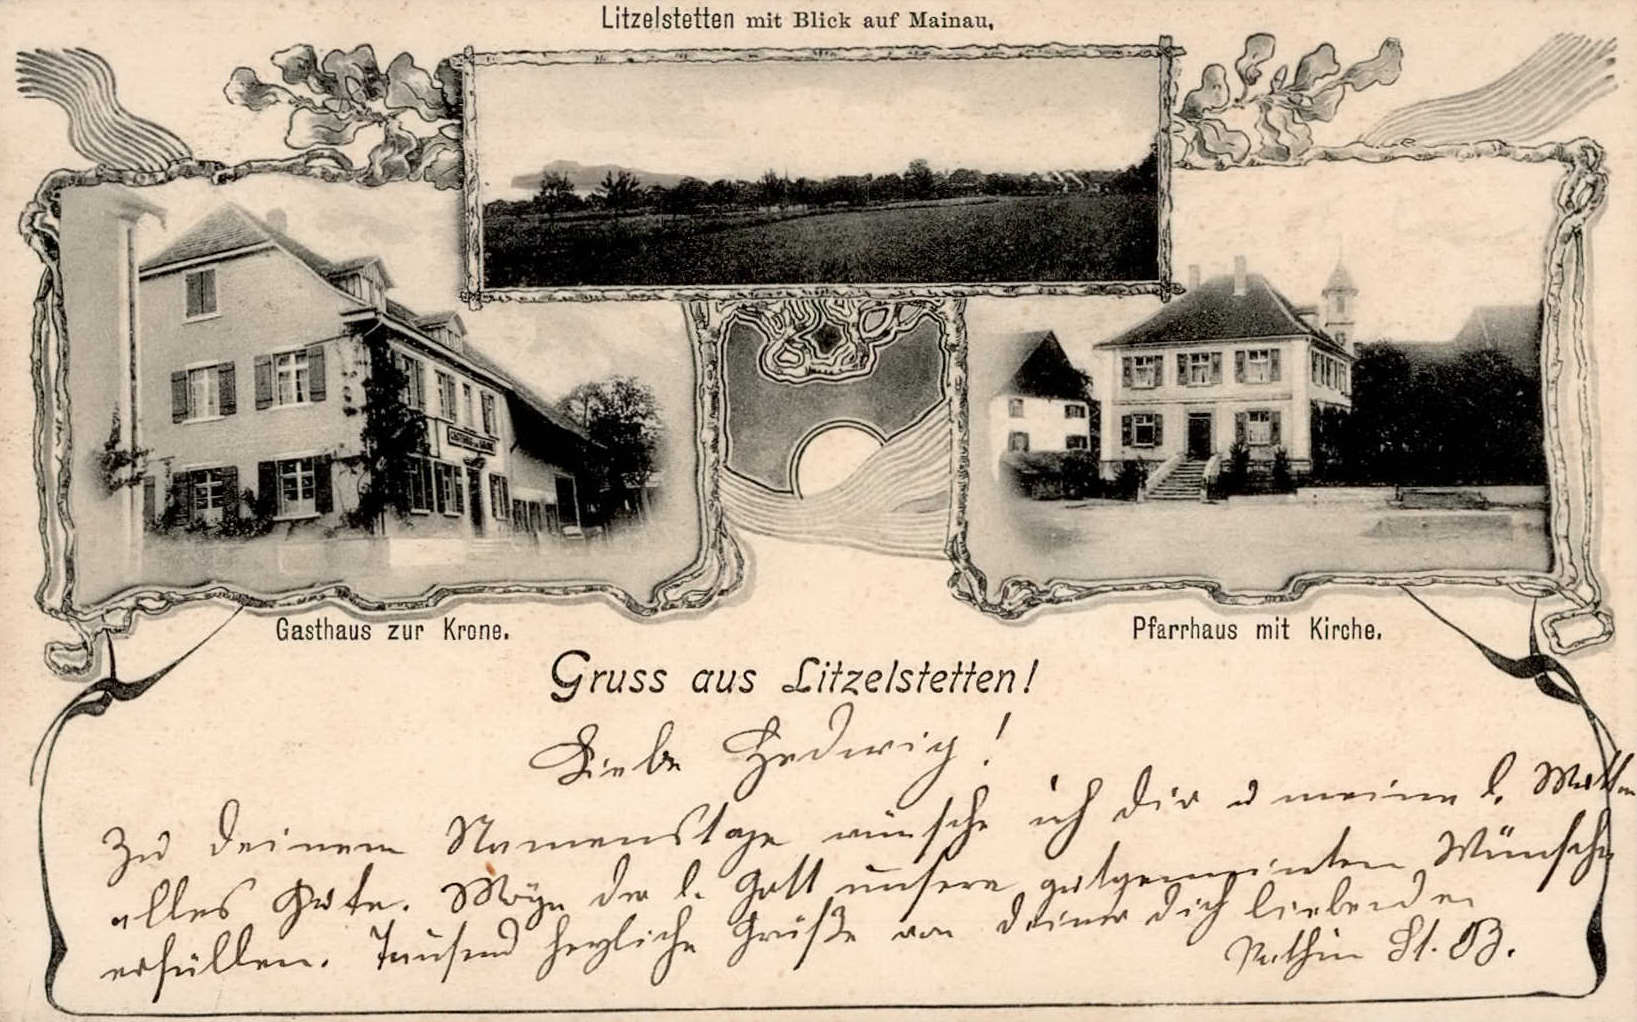 Litzelstetten mit Blick auf Mainau,
Gasthaus zur Krone.
Pfarrhaus mit Kirche.
Gruss aus Litzelstetten!
Liebe Hedwig!
Zu deinem Namenstage wünsche ich dir u meine l. Mutter
alles Gute. Möge der l. Gott unsere gutgemeinten Wünsche
erfüllen. Tausend herzliche Grüße von deiner dich liebenden
St. B.